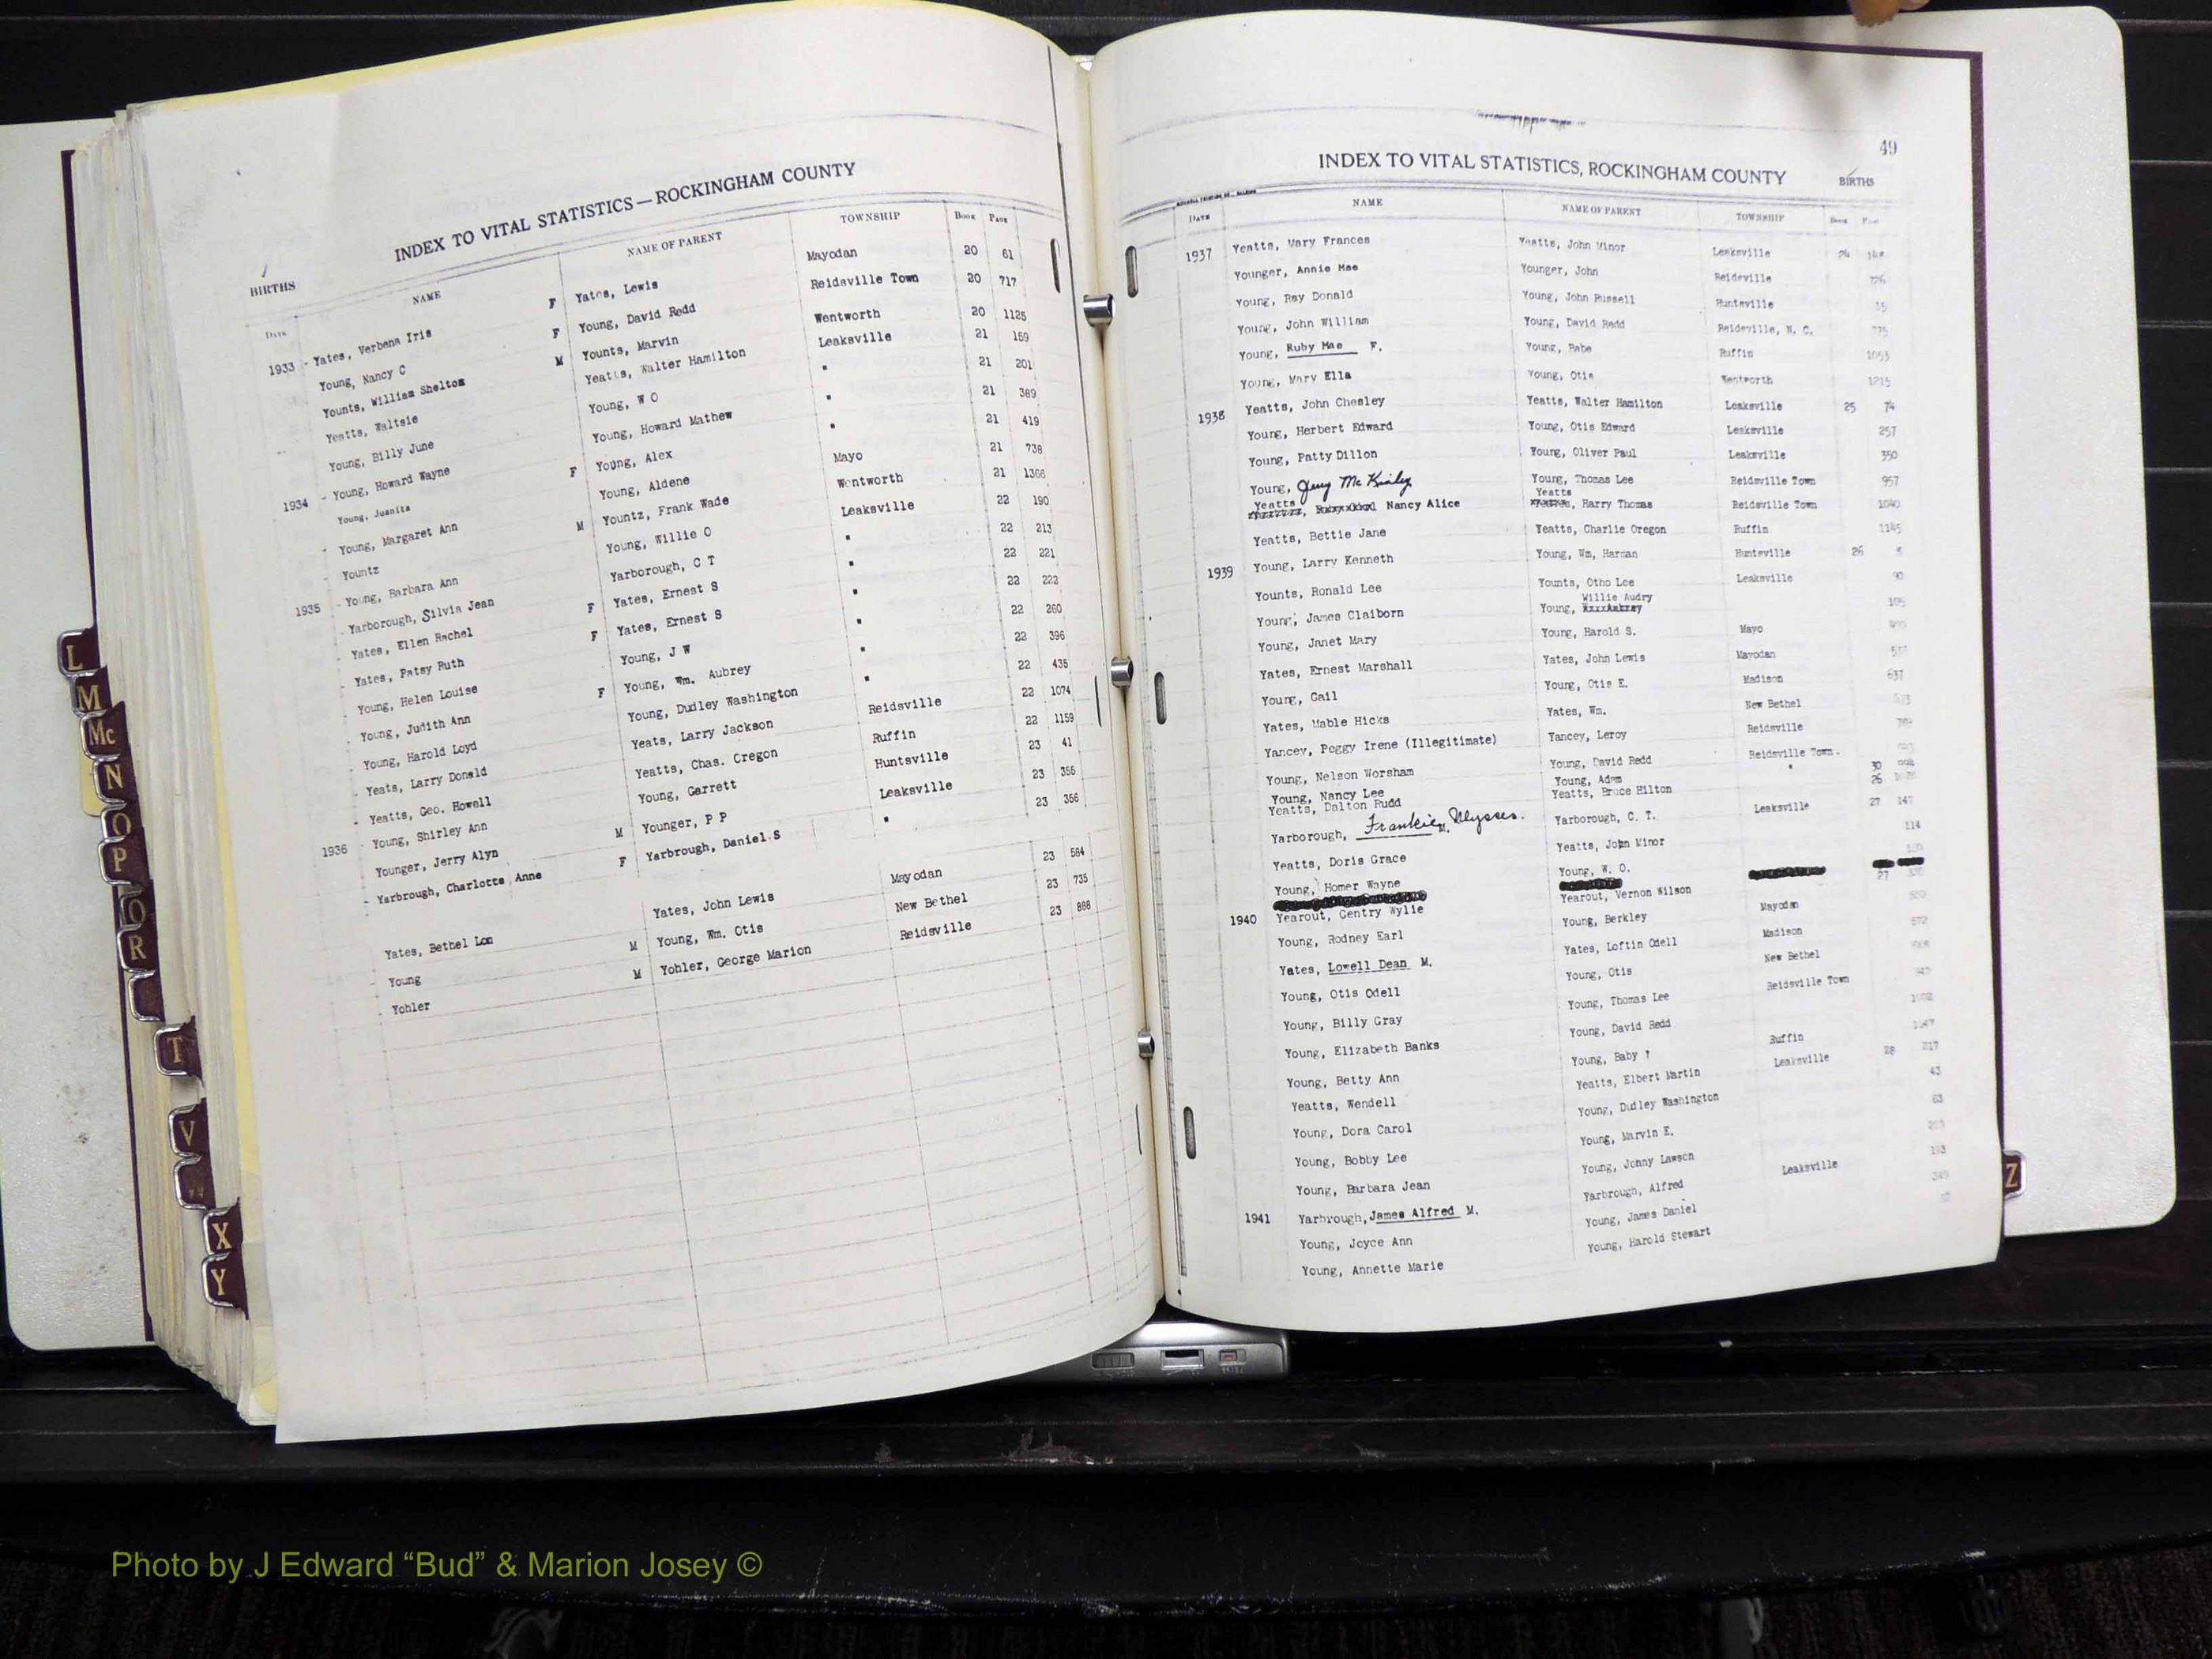 INDEX TO VITAL STATISTICS — ROCKINGHAM COUNTY
BIRTHS
DATE NAME NAME OF PARENT TOWNSHIP BOOK PAGE
1933 - Yates, Verbena Iris F Yates, Lewis Mayodan 20 61
Young, Nancy C F Young, David Redd Reidsville Town 20 717
Younts, William Shelton M Younts, Marvin Wentworth 20 1125
Yeatts, Waltsie Yeatts, Walter Hamilton Leaksville 21 159
Young, Billy June Young, W O " 21 201
1934 - Young, Howard Wayne Young, Howard Mathew " 21 389
Young, Juanita F Young, Alex " 21 419
- Young, Margaret Ann Young, Aldene Mayo 21 738
Yountz M Yountz, Frank Wade Wentworth 21 1366
1935 - Young, Barbara Ann Young, Willie O Leaksville 22 190
- Yarborough, Silvia Jean Yarborough, C T " 22 213
- Yates, Ellen Rachel F Yates, Ernest S " 22 221
- Yates, Patsy Ruth F Yates, Ernest S " 22 222
- Young, Helen Louise Young, J W " 22 260
- Young, Judith Ann F Young, Wm. Aubrey " 22 396
- Young, Harold Loyd Young, Dudley Washington " 22 435
- Yeats, Larry Donald Yeats, Larry Jackson Reidsville 22 1074
- Yeatts, Geo. Howell Yeatts, Chas. Oregon Ruffin 22 1159
1936 - Young, Shirley Ann Young, Garrett Huntsville 23 41
Younger, Jerry Alyn M Younger, P P Leaksville 23 355
- Yarbrough, Charlotte Anne F Yarbrough, Daniel S " 23 356
Yates, Bethel Lon Yates, John Lewis Mayodan 23 584
- Young M Young, Wm. Otis New Bethel 23 735
Yohler M Yohler, George Marion Reidsville 23 888
L
M
Mc
N
O
P
Q
R
T
V
X
Y
49
INDEX TO VITAL STATISTICS, ROCKINGHAM COUNTY
BIRTHS
DATE NAME NAME OF PARENT TOWNSHIP
1937 Yeatts, Mary Frances Yeatts, John Minor Leaksville 24
Younger, Annie Mae Younger, John Reidsville
Young, Ray Donald Young, John Russell Huntsville 15
Young, John William Young, David Redd Reidsville, N. C.
Young, Ruby Mae F. Young, Babe Ruffin 1053
Young, Mary Ella Young, Otis Wentworth 1215
1938 Yeatts, John Chesley Yeatts, Walter Hamilton Leaksville 25 74
Young, Herbert Edward Young, Otis Edward Leaksville 257
Young, Patty Dillon Young, Oliver Paul Leaksville 350
Young, Jerry McKinley Young, Thomas Lee Reidsville Town 957
Yeatts, Nancy Alice Yeatts, Harry Thomas Reidsville Town 1040
Yeatts, Bettie Jane Yeatts, Charlie Oregon Ruffin 1145
1939 Young, Larry Kenneth Young, Wm, Harman Huntsville 26
Younts, Ronald Lee Younts, Otho Lee Leaksville 90
Young, James Claiborn Young, Willie Audry 105
Young, Janet Mary Young, Harold S. Mayo
Yates, Ernest Marshall Yates, John Lewis Mayodan
Young, Gail Young, Otis E. Madison 637
Yates, Mable Hicks Yates, Wm. New Bethel
Yancey, Peggy Irene (Illegitimate) Yancey, Leroy Reidsville
Young, Nelson Worsham Young, David Redd Reidsville Town.
Young, Nancy Lee Young, Adam " 30
Yeatts, Dalton Rudd Yeatts, Bruce Hilton 26
Yarborough, Frankie Ulysses. M. Yarborough, C. T. Leaksville 27 147
Yeatts, Doris Grace Yeatts, John Minor 114
Young, Homer Wayne Young, W. O.
1940 Yearout, Gentry Wylie Yearout, Vernon Wilson 27
Young, Rodney Earl Young, Berkley Mayodan
Yates, Lowell Dean M. Yates, Loftin Odell Madison 572
Young, Otis Odell Young, Otis New Bethel
Young, Billy Gray Young, Thomas Lee Reidsville Town
Young, Elizabeth Banks Young, David Redd
Young, Betty Ann Young, Baby ? Ruffin
Yeatts, Wendell Yeatts, Elbert Martin Leaksville 28
Young, Dora Carol Young, Dudley Washington 43
Young, Bobby Lee Young, Marvin E. 63
Young, Barbara Jean Young, Jonny Lawson
1941 Yarbrough, James Alfred M. Yarbrough, Alfred Leaksville
Young, Joyce Ann Young, James Daniel
Young, Annette Marie Young, Harold Stewart
Z
Photo by J Edward “Bud” & Marion Josey ©